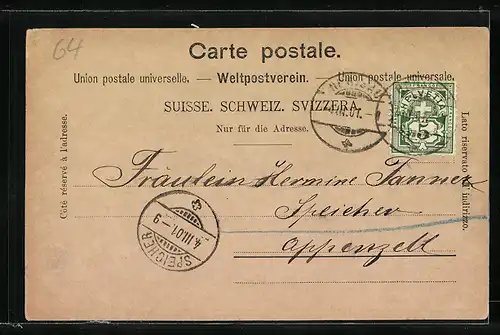 64
Carte postale.
Union postale universelle. — Weltpostverein. — Union postale universale.
SUISSE. SCHWEIZ. SVIZZERA.
Nur für die Adresse.
Côté réservé à l'adresse.
Lato riservato all' indirizzo.
HELVETIA
5
Fräulein Hermine Tanner
Speicher
Appenzell
SPEICHER
4.III.01-9